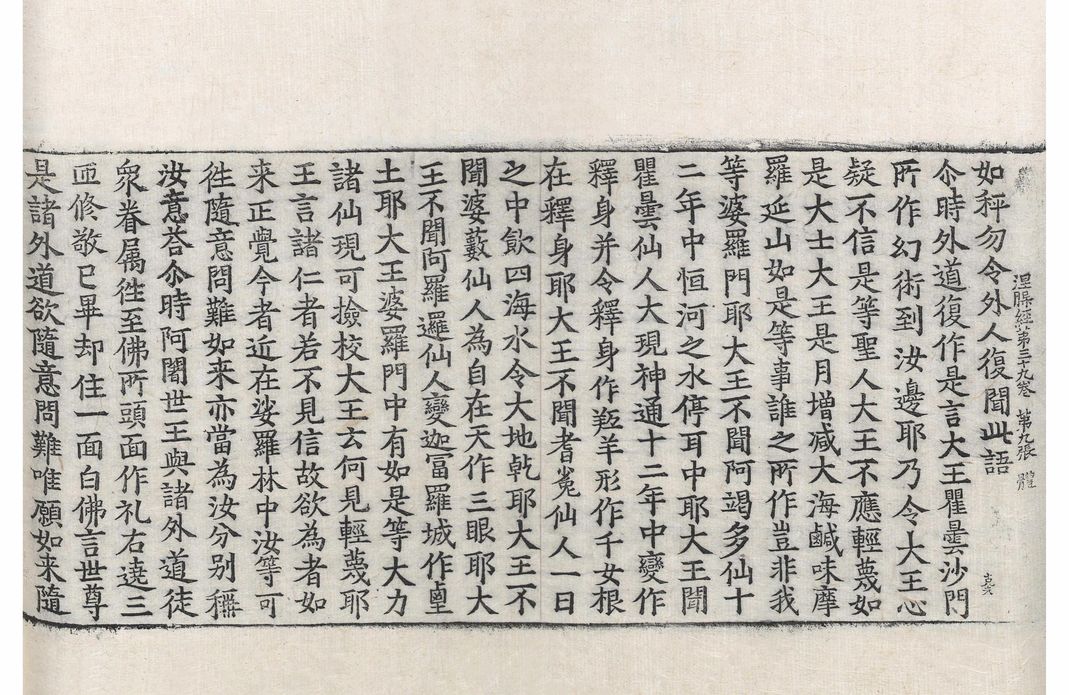 涅槃經第三十九卷 第九張 體
如秤勿令外人復聞此語
尒時外道復作是言大王瞿曇沙門
所作幻術到汝邊耶乃令大王心
疑不信是等聖人大王不應輕蔑如
是大士大王是月增減大海鹹味摩
羅延山如是等事誰之所作豈非我
等婆羅門耶大王不聞阿竭多仙十
二年中恒河之水停耳中耶大王不聞
瞿曇仙人大現神通十二年中變作
釋身并令釋身作羝羊形作千女根
在釋身耶大王不聞耆㝹仙人一日
之中飲四海水令大地乾耶大王不
聞婆藪仙人為自在天作三眼耶大
王不聞阿羅邏仙人變迦富羅城作鹵
土耶大王婆羅門中有如是等大力
諸仙現可撿校大王云何見輕蔑耶
王言諸仁者若不見信故欲為者如
来正覺今者近在娑羅林中汝等可
徃隨意問難如来亦當為汝分別稱
汝意荅尒時阿闍世王與諸外道徒
衆眷屬徃至佛所頭面作礼右遶三
匝修敬已畢却住一面白佛言世尊
是諸外道欲隨意問難唯願如来隨